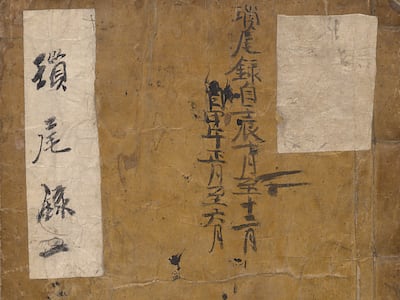 瑣尾錄自壬辰月至十二月
自甲午正月至六月
瑣尾錄